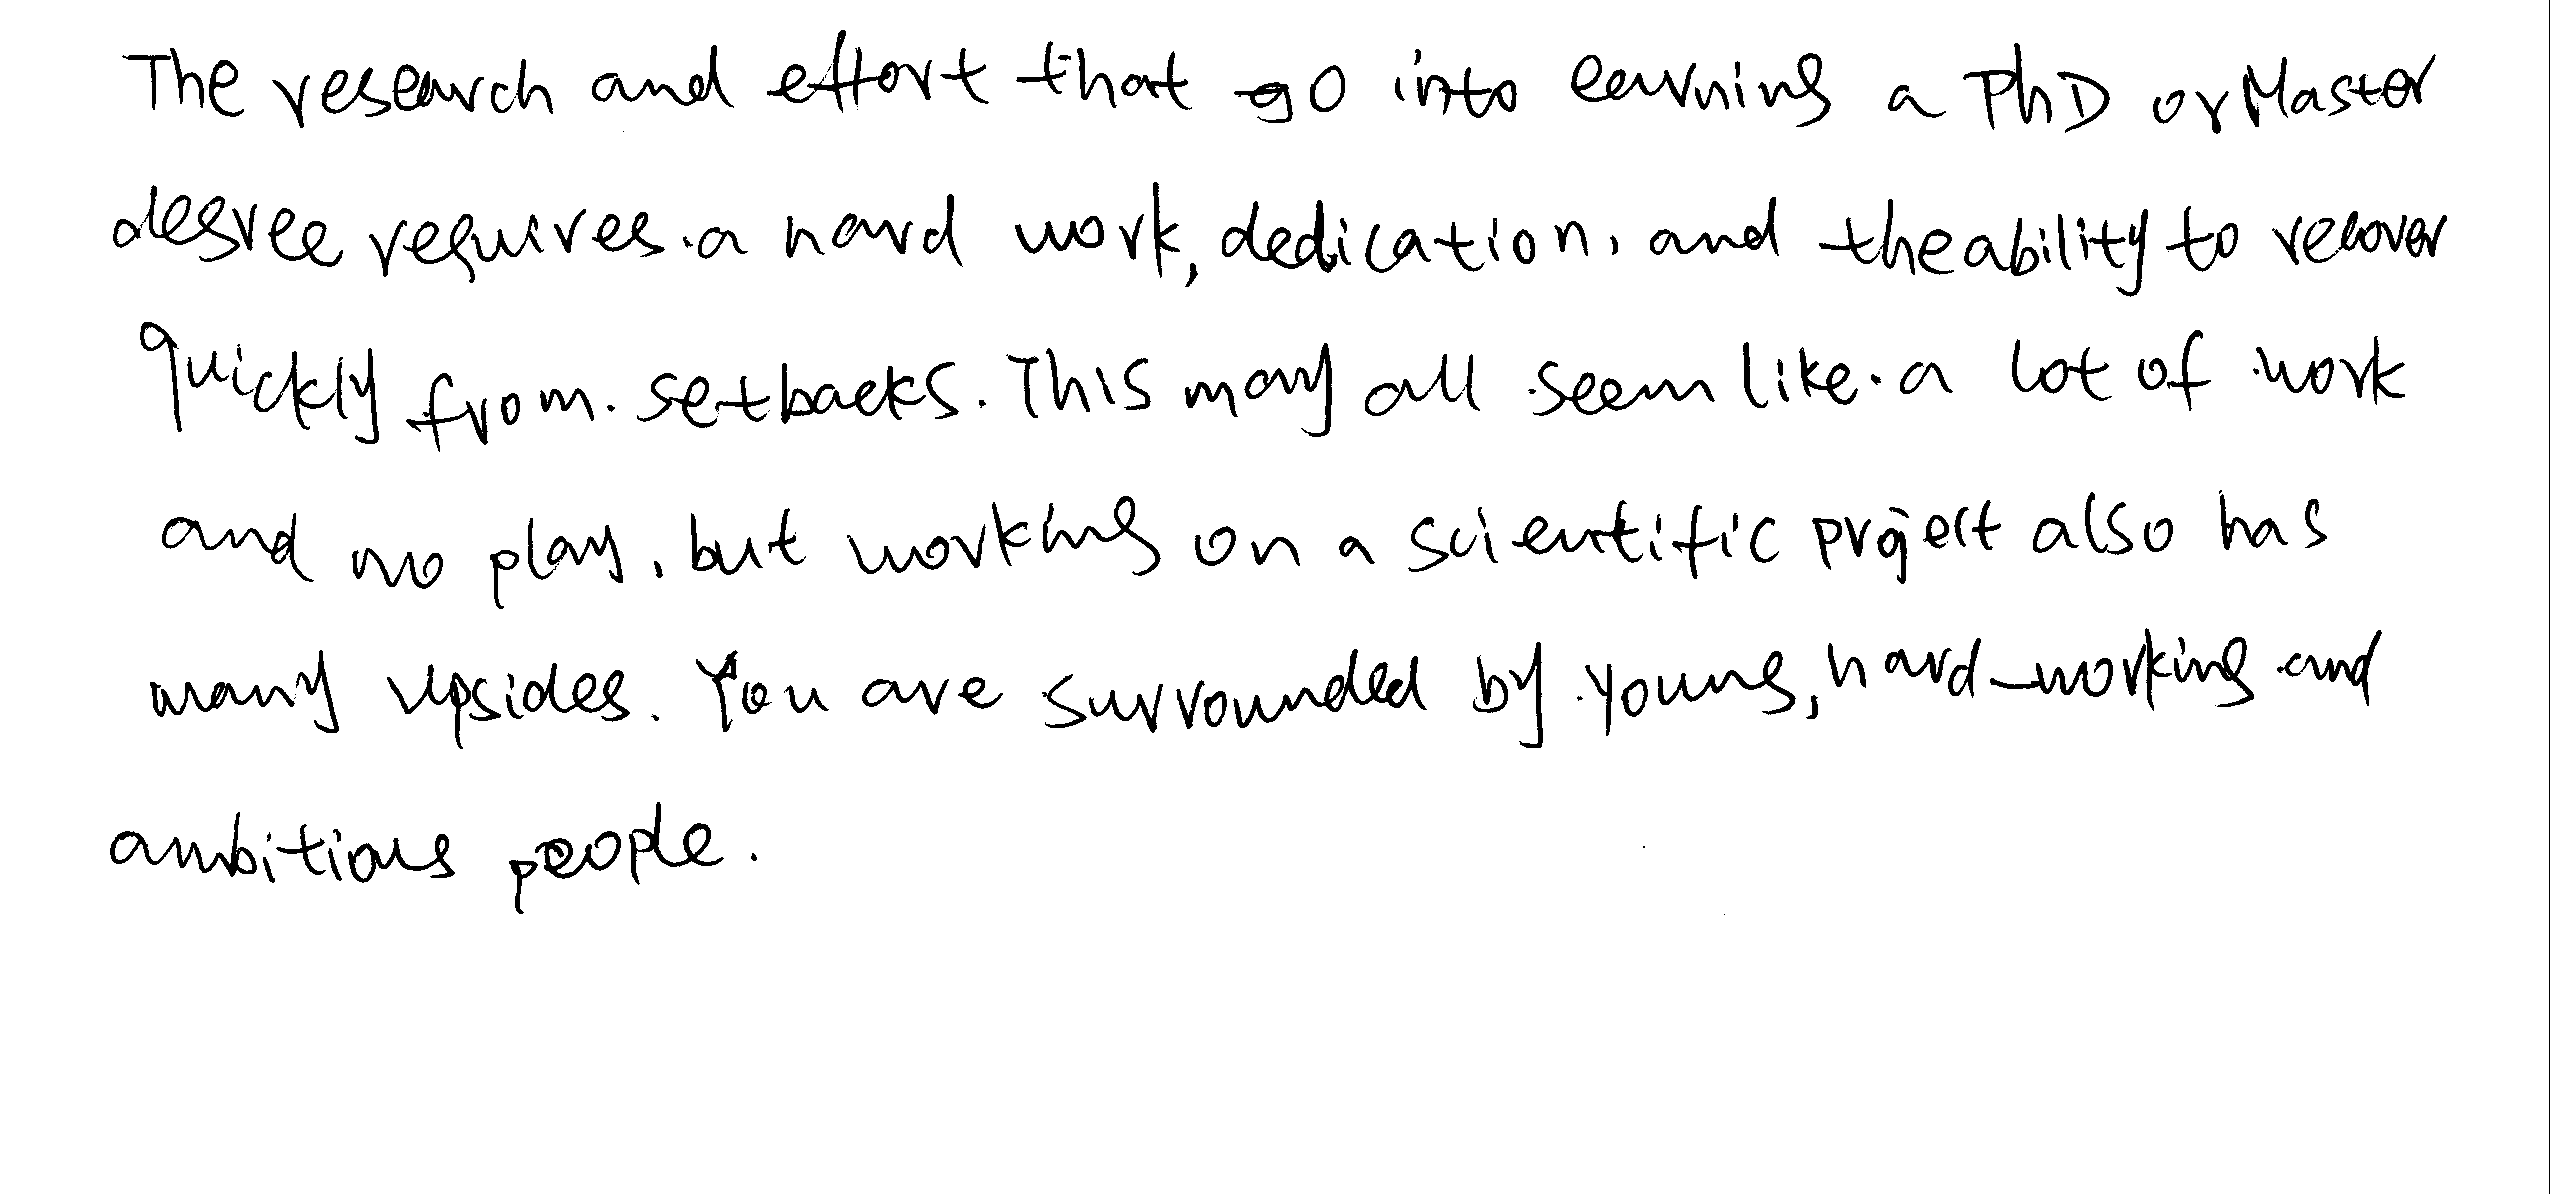 The research and effort that go into earning a PhD or Master
degree requires a hard work, dedication, and the ability to recover
quickly from setbacks. This may all seem like a lot of work
and no play, but working on a scientific project also has
many upsides. You are surrounded by young, hard-working and
ambitious people.